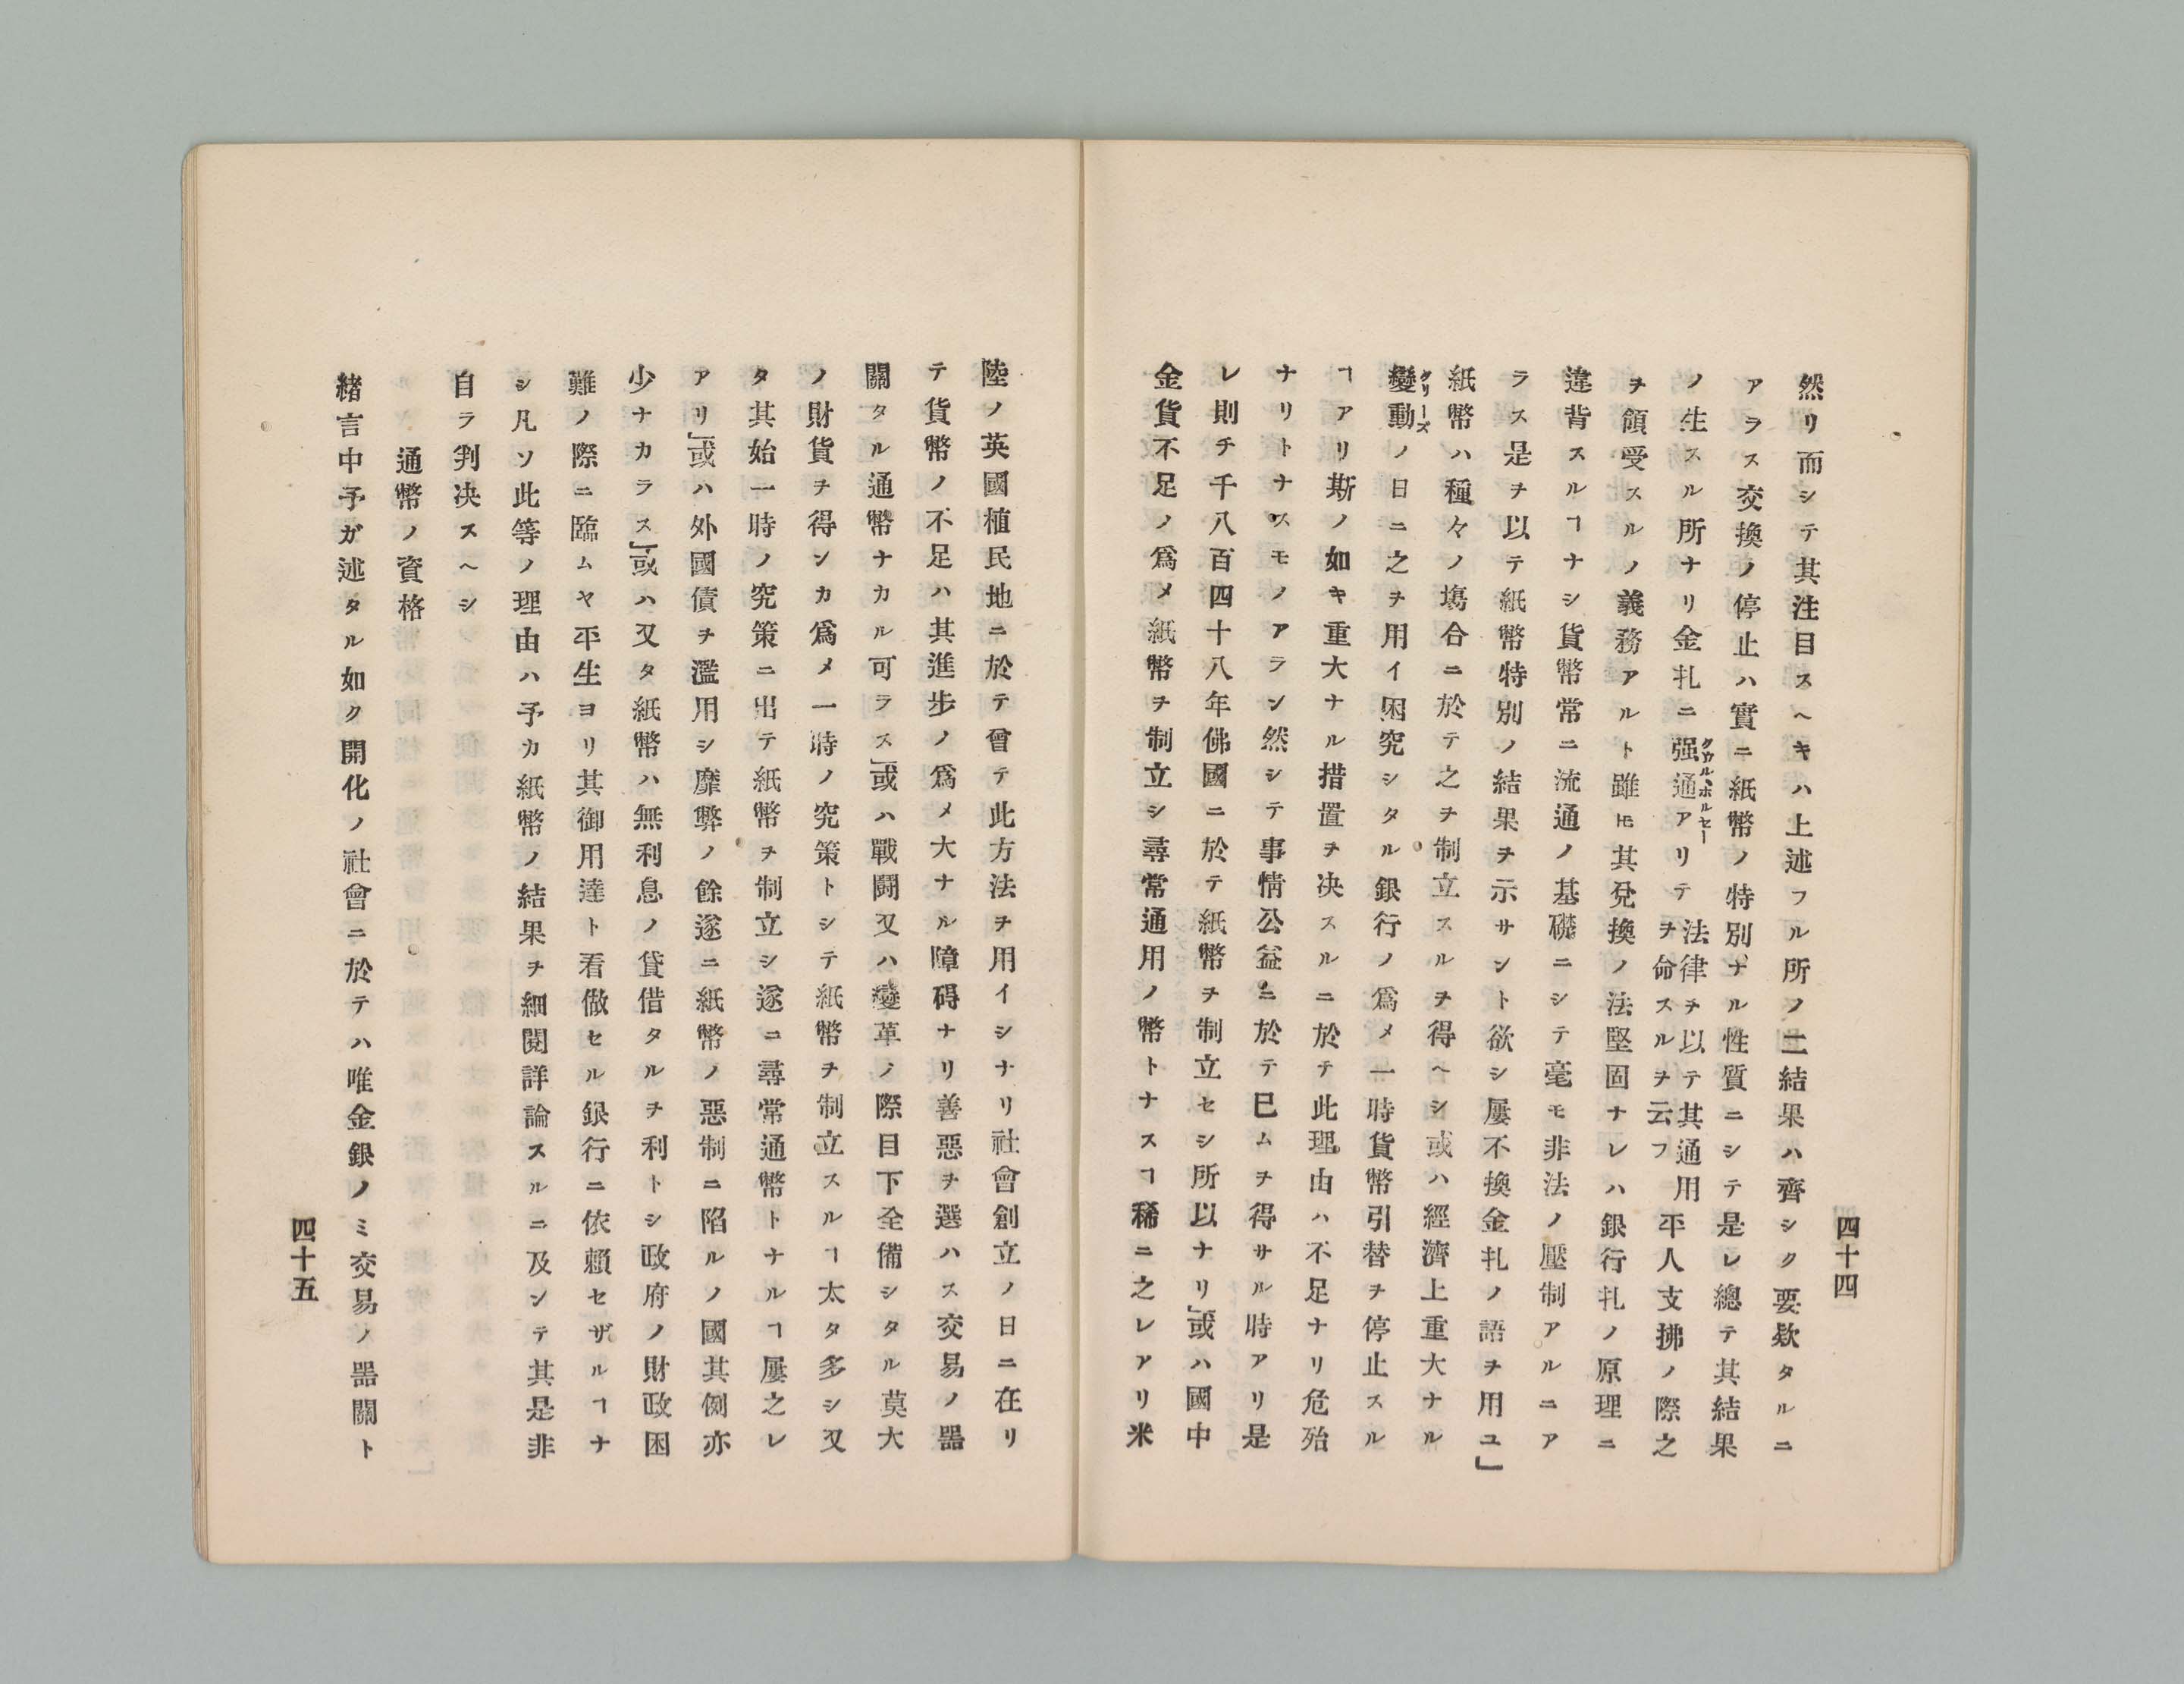 四十四
然リ而シテ其注目スヘキハ上述フル所ノ二結果ハ齊シク要欵タルニ
アラス交換ノ停止ハ實ニ紙幣ノ特別ナル性質ニシテ是レ總テ其結果
ノ生スル所ナリ金札ニ强通アリテ法律ヲ以テ其通用ヲ命スルヲ云フ平人支拂ノ際之
クウルホルセー
ヲ領受スルノ義務アルト雖𪜈其兌換ノ法堅固ナレハ銀行札ノ原理ニ
違背スルヿナシ貨幣常ニ流通ノ基礎ニシテ毫モ非法ノ壓制アルニア
ラス是ヲ以テ紙幣特別ノ結果ヲ示サント欲シ屢不換金札ノ語ヲ用ユ」
紙幣ハ種々ノ塲合ニ於テ之ヲ制立スルヲ得ヘシ或ハ經濟上重大ナル
クリーズ
變動ノ日ニ之ヲ用イ困究シタル銀行ノ爲メ一時貨幣引替ヲ停止スル
ヿアリ斯ノ如キ重大ナル措置ヲ决スルニ於テ此理由ハ不足ナリ危殆
ナリトナスモノアラン然シテ事情公益ニ於テ已ムヲ得サル時アリ是
レ則チ千八百四十八年佛國ニ於テ紙幣ヲ制立セシ所以ナリ」或ハ國中
金貨不足ノ爲メ紙幣ヲ制立シ尋常通用ノ幣トナスヿ稀ニ之レアリ米
陸ノ英國植民地ニ於テ曾テ此方法ヲ用イシナリ社會創立ノ日ニ在リ
テ貨幣ノ不足ハ其進步ノ爲メ大ナル障碍ナリ善惡ヲ選ハス交易ノ噐
關タル通幣ナカル可ラス」或ハ戰鬪又ハ變革ノ際目下全備シタル莫大
ノ財貨ヲ得ンカ爲メ一時ノ究策トシテ紙幣ヲ制立スルヿ太タ多シ又
タ其始一時ノ究策ニ出テ紙幣ヲ制立シ遂ニ尋常通幣トナルヿ屢之レ
アリ」或ハ外國債ヲ濫用シ靡弊ノ餘遂ニ紙幣ノ惡制ニ陷ルノ國其例亦
少ナカラス」或ハ又タ紙幣ハ無利息ノ貸借タルヲ利トシ政府ノ財政困
難ノ際ニ臨ムヤ平生ヨリ其御用達ト看傚セル銀行ニ依賴セザルヿナ
シ凡ソ此等ノ理由ハ予カ紙幣ノ結果ヲ細閱詳論スルニ及ンテ其是非
自ラ判决スヘシ
通幣ノ資格
緒言中予ガ述タル如ク開化ノ社會ニ於テハ唯金銀ノミ交易ノ噐關ト
四十五